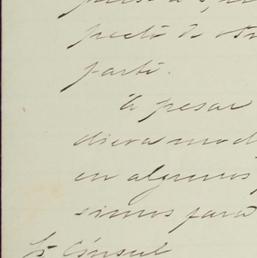 pecto de otr
parte.
A pesar
diera mod
en algunos
simos para
Sr Cónsul